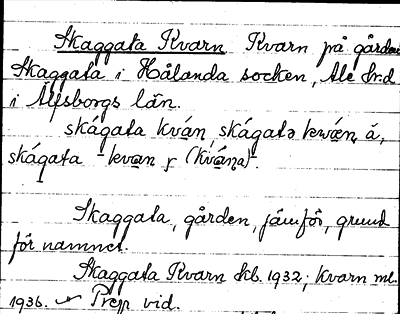 Skaggata Kvarn Kvarn på gården
Skaggata i Hålanda socken, Ale hrd
i Älfsborgs län.
skágata kván, skágatə kwæn, á,
skágata - kvæn f (kvána)-.
Skaggata, gården, jämför, grund
för namnet.
Skaggata Kvarn Kb. 1932; Kvarn ml.
1936. Prejp vid.